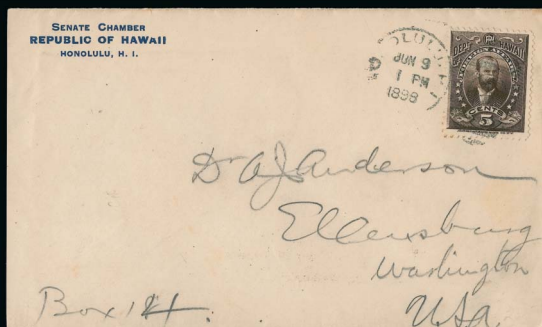 SENATE CHAMBER
REPUBLIC OF HAWAII
HONOLULU, H. I.
JUN 9
1 PM
1898
DEPT HAWAII
FOREIGN AFFAIRS
5 CENTS 5
Dr A J Anderson
Ellensburg
Washington
USA
Box 124.